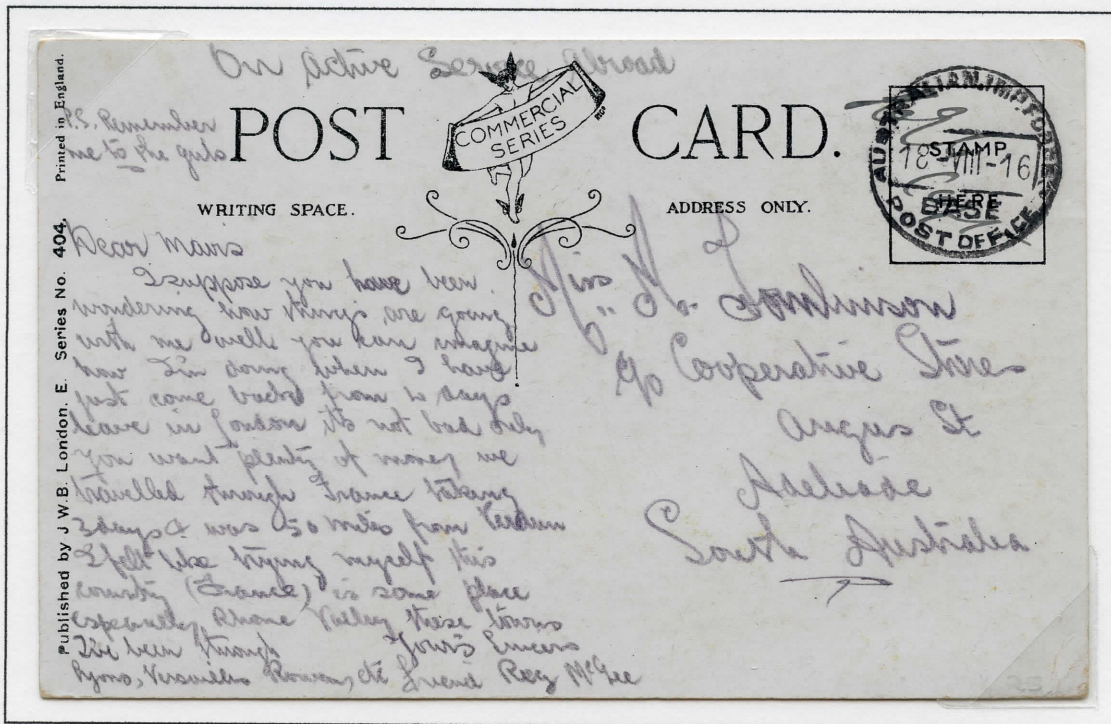 On Active Service Abroad
P.S. Remember
me to the girls
POST CARD.
COMMERCIAL
SERIES
WRITING SPACE.
ADDRESS ONLY.
STAMP
HERE
AUSTRALIAN.IMP.FORCES
18-VIII-16
BASE
POST OFFICE
Printed in England.
Published by J.W.B. London. E. Series No. 404.
Dear Mavis
I suppose you have been
wondering how things are going
with me well you can imagine
how I'm doing when I have
just come back from days
leave in London its not bad only
you want plenty of money we
travelled through France taking
3 days & was 50 miles from Verdun
I felt like trying myself this
country (France) is some place
especially Rhone Valley these towns
I've been through Yours
Lyons, Versailles Rouen, etc friend Reg McGee
Miss M. Tomlinson
c/o Cooperative Stores
Angas St
Adelaide
South Australia